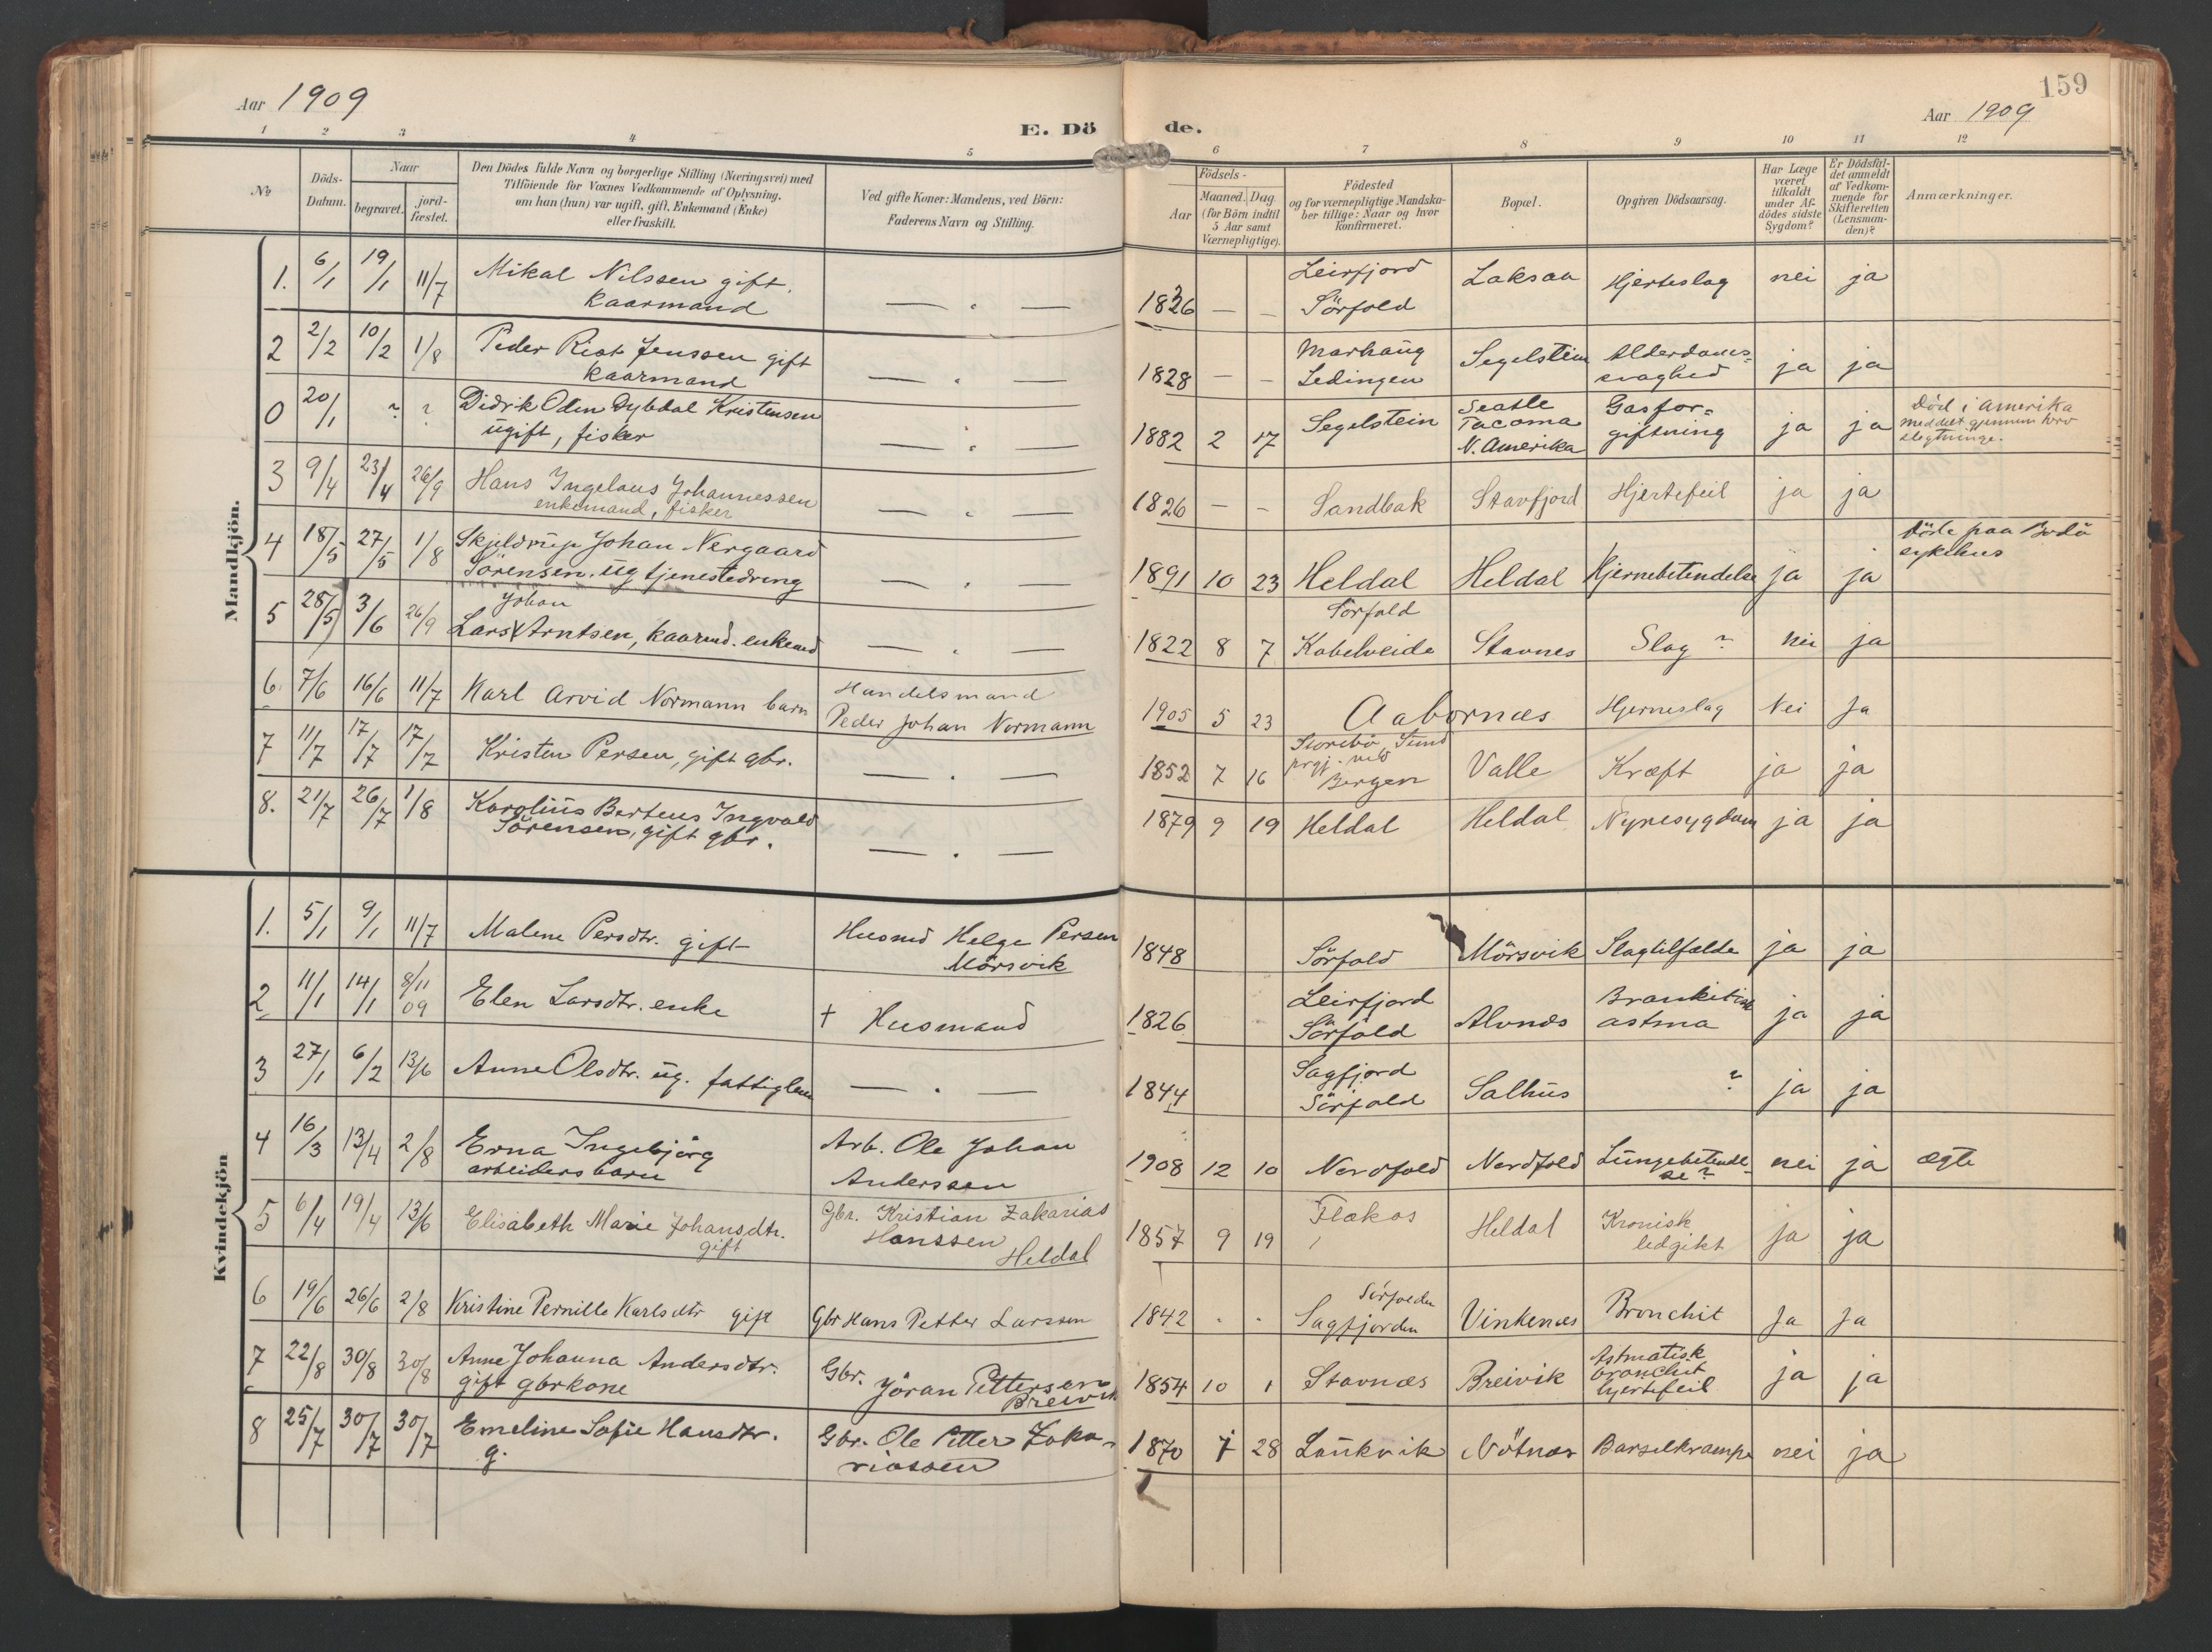 Aar 1909
E. Dö
de.
159
Aar 1909
1 2 3 4 5 6 7 8 9 10 11 12
No
Döds-
Datum.
Naar
begravet.
jord-
fæstet.
Den Dödes fulde Navn og borgerlige Stilling (Næringsvei) med
Tilföiende for Voxnes Vedkommende af Oplysning,
om han (hun) var ugift, gift, Enkemand (Enke)
eller fraskilt.
Ved gifte Koner: Mandens, ved Börn:
Faderens Navn og Stilling.
Födsels-
Aar
Maaned. Dag.
(for Börn indtil
5 Aar samt
Værnepligtige).
Födested
og for værnepligtige Mandska-
ber tillige: Naar og hvor
konfirmeret.
Bopæl.
Opgiven Dödsaarsag.
Har Læge
været
tilkaldt
under Af-
dödes sidste
Sygdom?
Er Dödsfal-
det anmeldt
af Vedkom-
mende for
Skifteretten
(Lensman-
den)?
Anmærkninger.
Mandkjön.
1. 6/1 19/1 11/7 Mikal Nilssen gift.
kaarmand
1826 Leirfjord
Sörfold Laksaa Hjerteslag nei ja
2 2/2 10/2 1/8 Peder Rist Jenssen gift
kaarmand
1828 Marhaug
Ledingen Segelstein Alderdoms-
svaghed ja ja
0 20/1 ? ? Didrik Odin Dybdal Kristensen
ugift, fisker
1882 2 17 Segelstein Seatle
Tacoma
N. Amerika Gasfor-
giftning ja ja Död i Amerika
meddelt gjennem
slegtninge.
3 9/4 23/4 26/9 Hans Ingelaus Johannessen
enkemand, fisker
1826 Sandbak Stavfjord Hjertefeil ja ja
4 18/5 27/5 1/8 Skjeldrup Johan Nergaard
Sörensen. ug tjenestedreng
1891 10 23 Heldal Heldal Hjernebetendelse ja ja Döde paa Bodö
sykehus
5 28/5 3/6 26/9 Johan
Lars Arntsen, kaarmd. enkemd
1822 8 7 Sörfold
Kobelveide Stavnes Slag? nei ja
6. 7/6 16/6 11/7 Karl Arvid Normann barn Handelsmand
Peder Johan Normann
1905 5 23 Aabornæs Hjerneslag Nei Ja
7 11/7 17/7 17/7 Kristen Persen, gift gbr.
1852 7 16 Storebö, Sund
prgj. ved
Bergen Valle Kræft ja ja
8. 21/7 26/7 1/8 Karolius Berteus Ingvald
Sörensen, gift gbr.
1879 9 19 Heldal Heldal Nyresygdom ja ja
Kvindekjön
1. 5/1 9/1 11/7 Malene Persdtr. gift Husmd Helge Persen
Mörsvik
1848 Sörfold Mörsvik Slagtilfælde ja ja
2 11/1 14/1 8/11
09 Elen Larsdtr. enke † Husmand
1826 Leirfjord
Sörfold Alvnæs Brankitisk
astma ja ja
3 27/1 6/2 13/6 Anne Olsdtr. ug. fattiglem
1844 Sagfjord
Sörfold Salhus ? ja ja
4 16/3 13/4 2/8 Erna Ingebjörg
arbeiders barn Arb. Ole Johan
Anderssen
1908 12 10 Nordfold Nordfold Lungebetendel-
se? nei ja ægte
5 6/4 19/4 13/6 Elisabeth Marie Johansdtr.
gift Gbr. Kristian Zakarias
Hanssen
Heldal
1857 9 19 Flækos Heldal Kronisk
ledgikt ja ja
6 19/6 26/6 2/8 Kristine Pernille Karlsdtr gift Gbr Hans Petter Larssen
1842 Sörfolden
Sagfjorden Vinkenæs Bronchit Ja Ja
7 22/8 30/8 30/8 Anne Johanna Andersdtr.
gift gbrkone Gbr. Jöran Pettersen
Breivik
1854 10 1 Stavnæs Breivik Astmatisk
bronchit
hjertefeil ja ja
8 25/7 30/7 30/7 Emeline Sofie Hansdtr.
g. Gbr. Ole Petter Zaka-
riassen
1870 7 28 Laukvik Nötnæs Barselkrampe nei ja